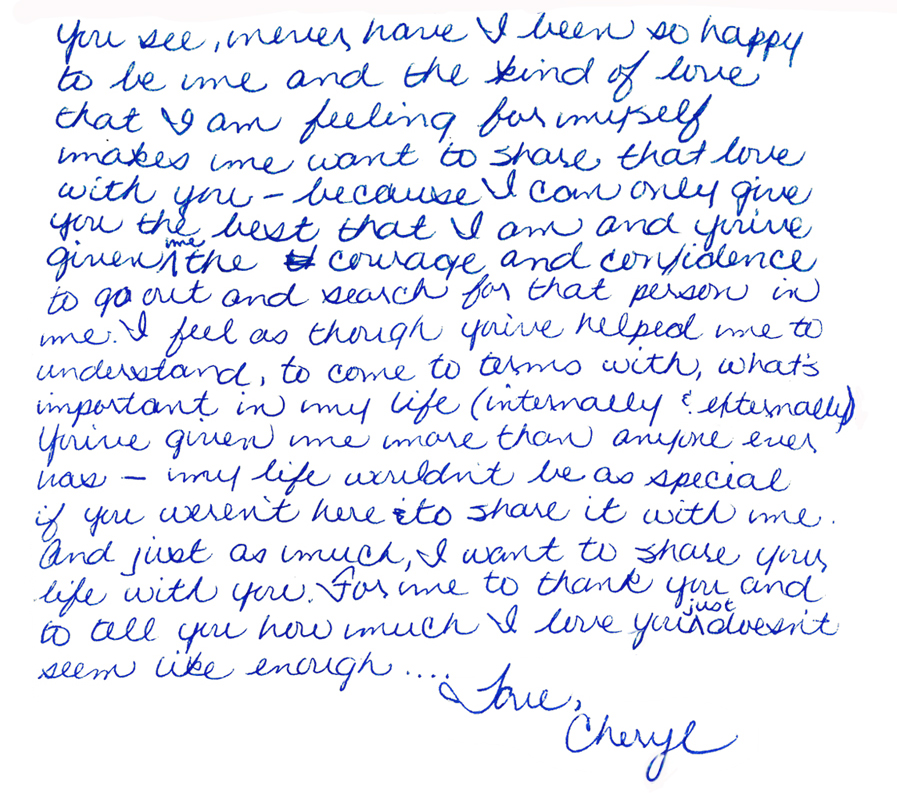 you see, never have I been so happy
to be me and the kind of love
that I am feeling for myself
makes me want to share that love
with you - because I can only give
you the best that I am and you've
given me the courage and confidence
to go out and search for that person in
me. I feel as though you've helped me to
understand, to come to terms with, what's
important in my life (internally & externally)
You've given me more than anyone ever
has - my life wouldn't be as special
if you weren't here to share it with me.
And just as much, I want to share your
life with you. For me to thank you and
to tell you how much I love you just doesn't
seem like enough ....
Love,
Cheryl